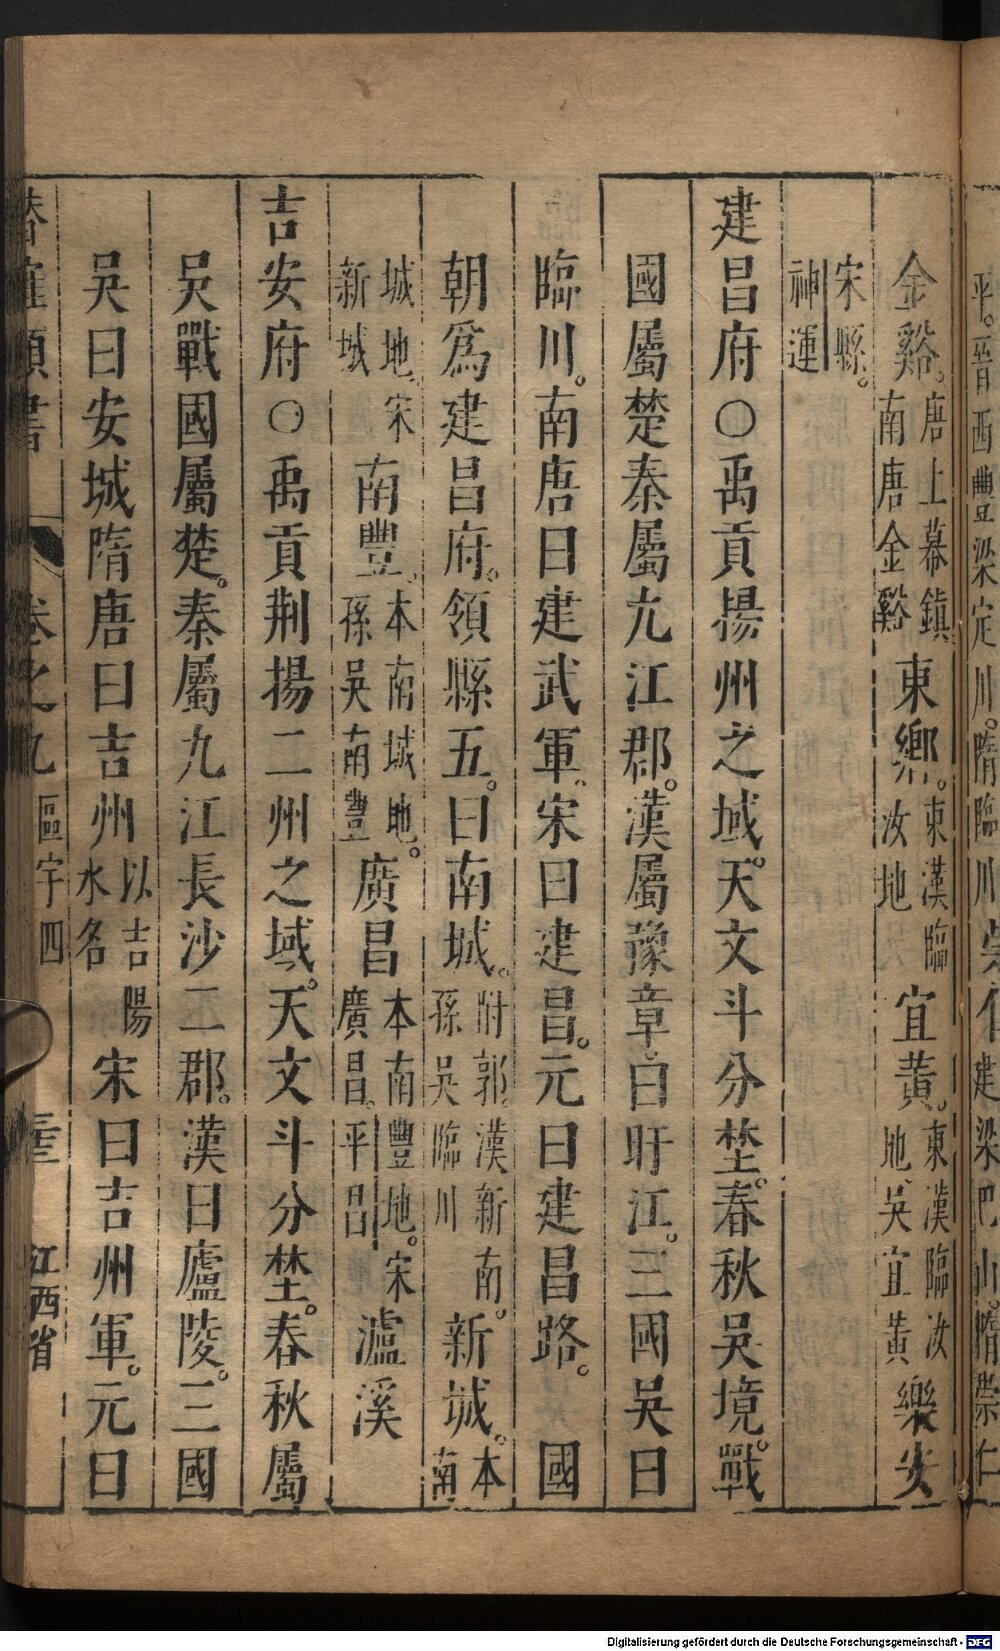 平。晉西豐梁定川。隋臨川崇仁建梁巴山。隋崇仁
金谿。唐上幕鎮。南唐金谿東鄉。東漢臨汝地宜黃。東漢臨汝地、吳宜黃樂安
宋縣。神運
建昌府〇禹貢揚州之域。天文斗分埜。春秋吳境。戰
國屬楚秦屬九江郡。漢屬豫章。曰盱江。三國吳曰
臨川。南唐曰建武軍。宋曰建昌。元曰建昌路。國
朝爲建昌府。領縣五。曰南城。附郭。漢新南。孫吳臨川新城。本南
城地。宋新城南豐。本南城地。孫吳南豐廣昌本南豐地。宋廣昌。平昌瀘溪
吉安府〇禹貢荆揚二州之域。天文斗分埜。春秋屬
吳戰國屬楚。秦屬九江長沙二郡。漢曰廬陵。三國
吳曰安城隋唐曰吉州以吉陽水名宋曰吉州軍。元曰
潜確類書 卷之九 區宇四 江西省
Digitalisierung gefördert durch die Deutsche Forschungsgemeinschaft - DFG